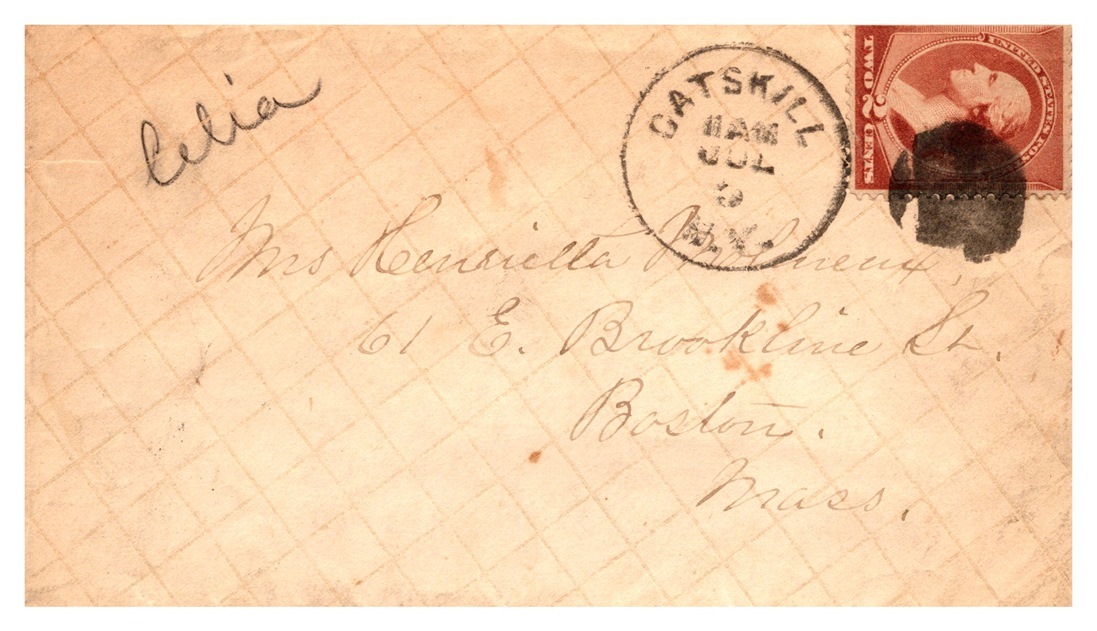 Celia
CATSKILL
11AM
JUL
9
N.Y.
UNITED STATES POS
TWO 2 CENTS
Mrs Henrietta Molineux,
61 E. Brookline St.
Boston.
Mass.